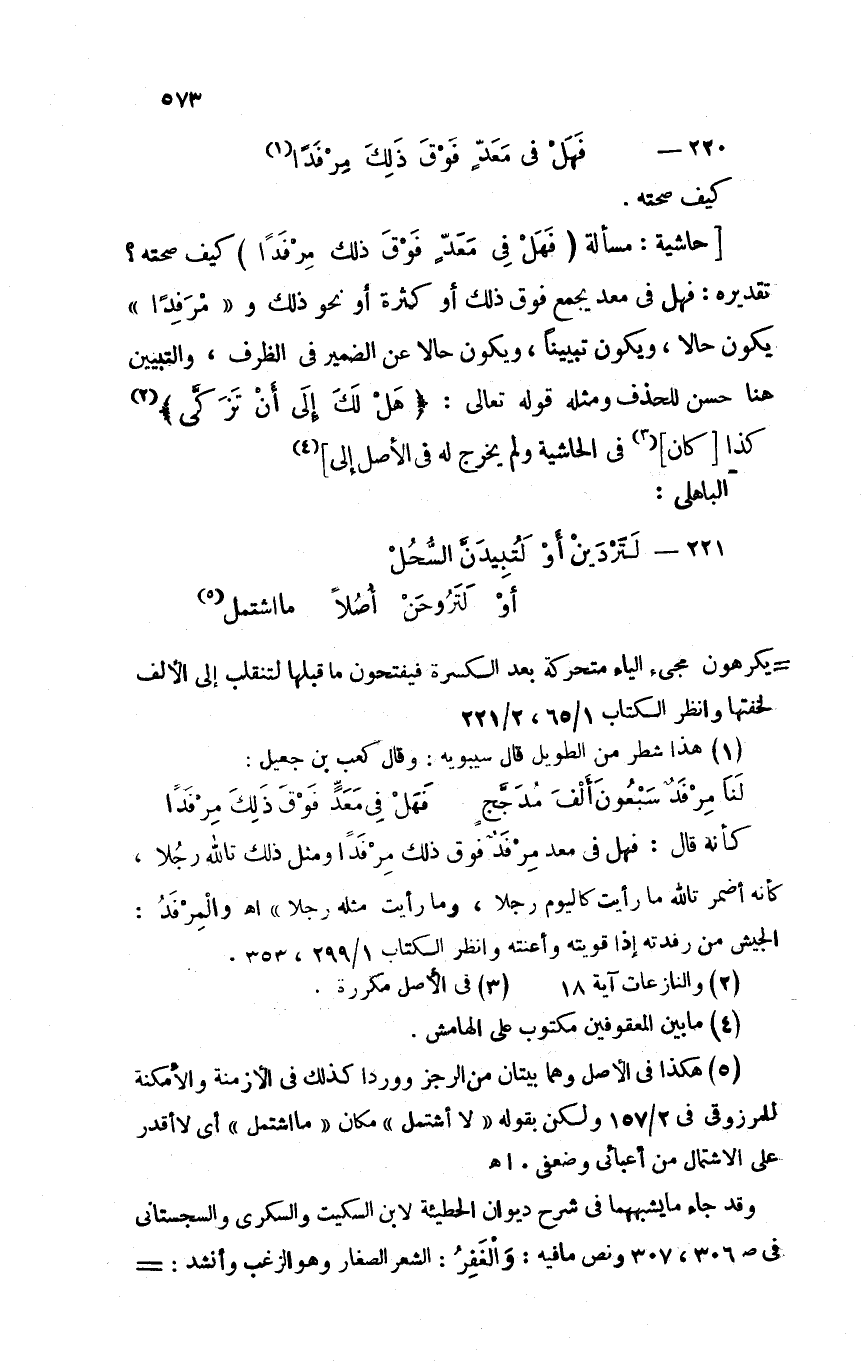 ٥٧٣
٢٢٠ — فَهَلْ فى مَعَدٍّ فَوْقَ ذَلِكَ مِرْفَدًا(١)
كيف صحته .
[ حاشية : مسألة ( فَهَلْ فِى مَعَدٍّ فَوْقَ ذلك مِرْفَدًا ) كيف صحته ؟
تقديره : فهل فى معد يجمع فوق ذلك أو كثرة أو نحو ذلك و « مْرَفِدًا »
يكون حالا ، ويكون تبييناً ، ويكون حالا عن الضمير فى الظرف ، والتبيين
هنا حسن للحذف ومثله قوله تعالى : ﴿ هَلْ لَكَ إِلَى أَنْ تَزَكَّى ﴾(٢)
كذا [ كان ](٣) فى الحاشية ولم يخرج له فى الأصل إلى ](٤)
الباهلى :
٢٢١ — لَتَرْدَيِنْ أَوْ لَتُبِيدَنَّ السُّحُلْ
أوْ لَتَرُوحَنْ أُصُلاً مااشتمل(٥)
= يكرهون مجىء الياء متحركة بعد الكسرة فيفتحون ما قبلها لتنقلب إلى الألف
لخفتها وانظر الكتاب ٦٥/١ ، ٢٢١/٢
(١) هذا شطر من الطويل قال سيبويه : وقال كعب بن جعيل :
لَنَا مِرْفَدٌ سَبْعُونَ أَلْفَ مُدَجَّجٍ فَهَلْ فِى مَعَدٍّ فَوْقَ ذَلِكَ مِرْفَدًا
كأنه قال : فهل فى معد مِرْفَدٌ فوق ذلك مِرْفَدًا ومثل ذلك تالله رجُلا ،
كأنه أضمر تالله ما رأيت كاليوم رجلا ، وما رأيت مثله رجلا » اه والْمِرْفَدُ :
الجيش من رفدته إذا قويته وأعنته وانظر الكتاب ٢٩٩/١ ، ٣٥٣ .
(٢) والنازعات آية ١٨ (٣) فى الأصل مكررة .
(٤) مابين المعقوفين مكتوب على الهامش .
(٥) هكذا فى الأصل وهما بيتان من الرجز ووردا كذلك فى الأزمنة والأمكنة
للمرزوقى فى ١٥٧/٢ ولكن بقوله « لا أشتمل » مكان « مااشتمل » أى لاأقدر
على الاشتمال من أعبائى وضعفى . اه
وقد جاء مايشبههما فى شرح ديوان الحطيئة لابن السكيت والسكرى والسجستانى
فى ص ٣٠٦ ، ٣٠٧ ونص مافيه : وَالْغَفِرُ : الشعر الصغار وهو الزغب وأنشد : =